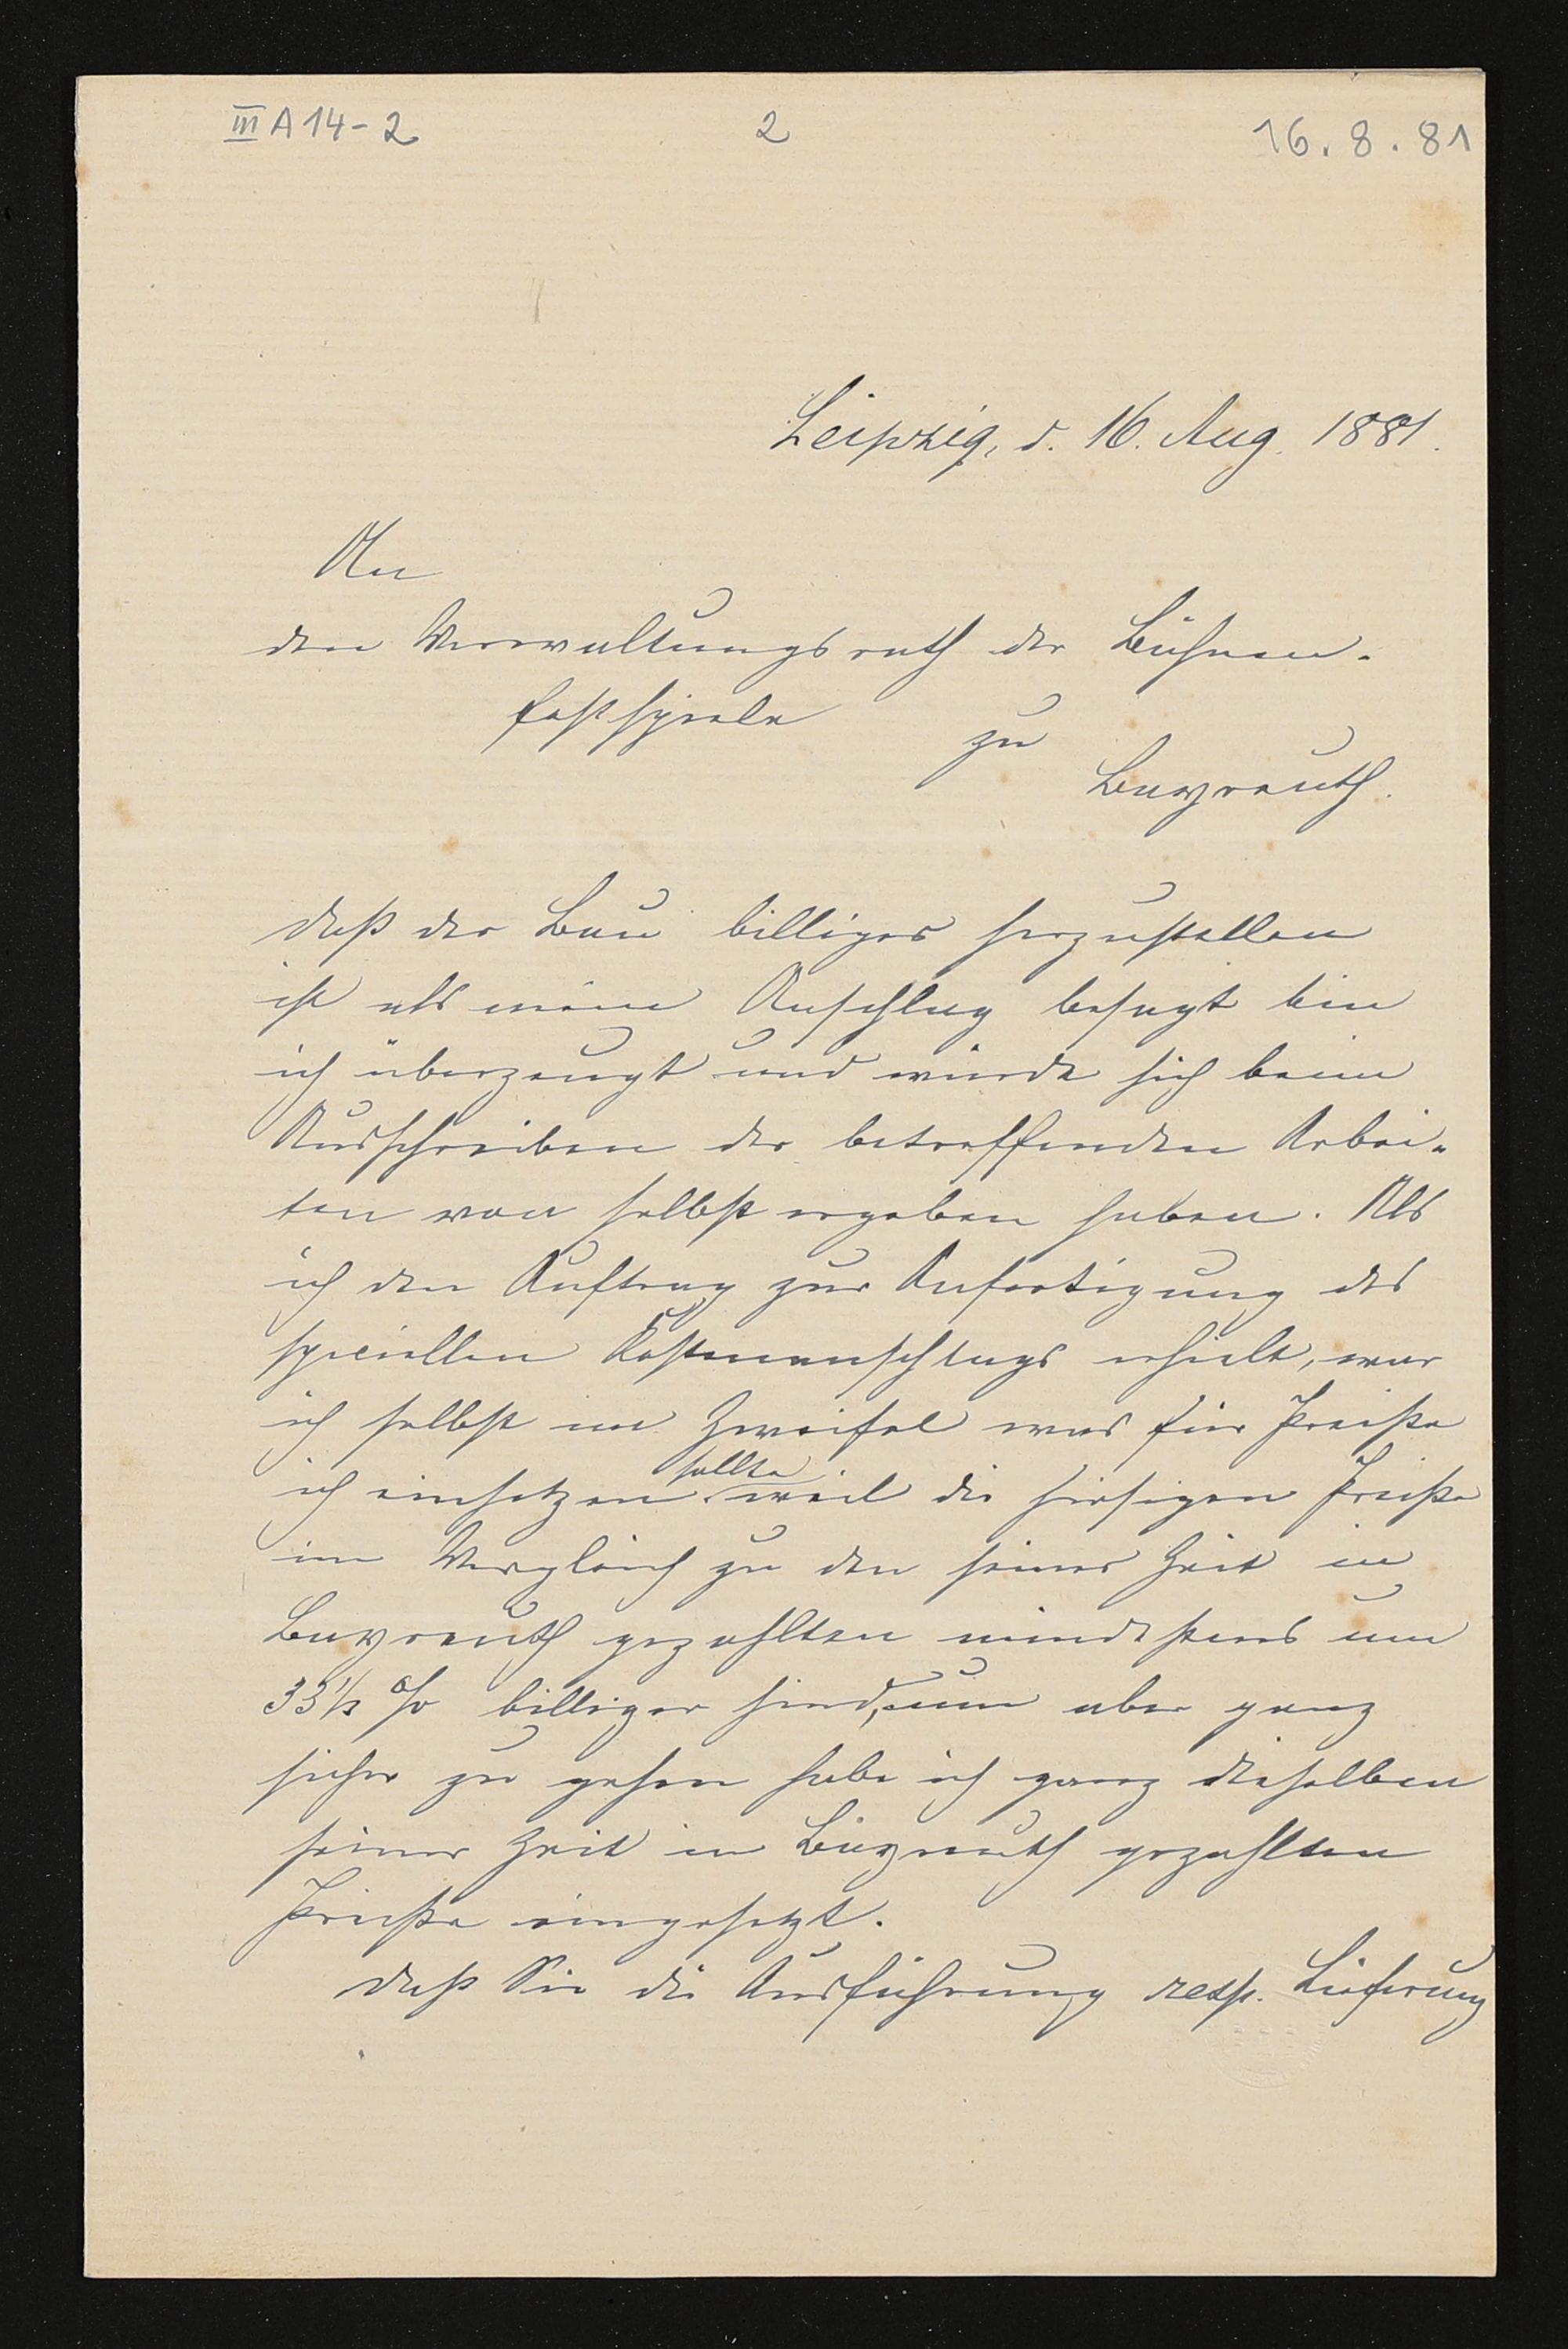 III A 14-2 2 16.8.81
Leipzig, d. 16. Aug. 1881.
An
den Verwaltungsrath der Bühnen-
festspiele
zu
Bayreuth.
Daß der Bau billiger herzustellen
ist als mein Anschlag besagt bin
ich überzeugt und würde sich beim
Ausschreiben der betreffenden Arbei-
ten von selbst ergeben haben. Als
ich den Auftrag zur Anfertigung des
speciellen Kostenanschlags erhielt, war
ich selbst im Zweifel was für Preiße
ich einsetzen sollte weil die hiesigen Preiße
im Vergleich zu den seiner Zeit in
Bayreuth gezahlten mindestens um
33 1/3 % billiger sind, um aber ganz
sicher zu gehen habe ich ganz dieselben
seiner Zeit in Bayreuth gezahlten
Preiße eingesetzt.
Daß Sie die Ausführung resp. Lieferung